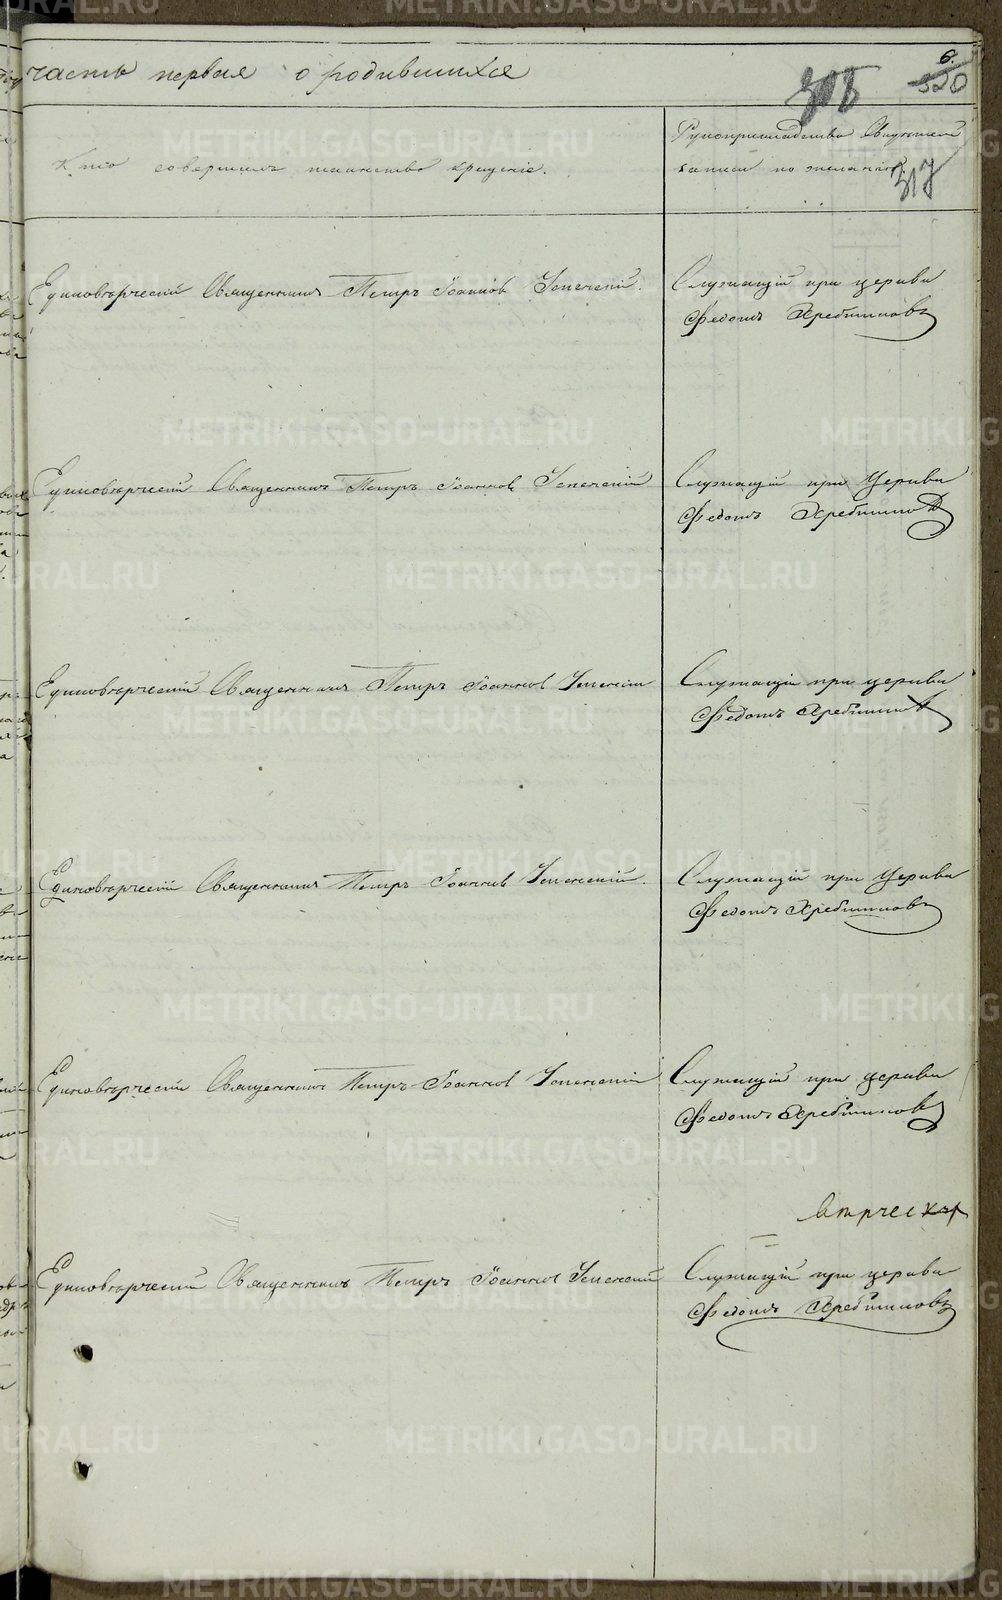 часть первая о родившихся
6.
320
305
317
Кто совершалъ таинство крещенія.
Рукоприкладство свидѣтелей
записи по желанію.
Единовѣрческій Священникъ Петръ Іоанновъ Успенскій.
Служащій при церкви
Федотъ Хребтиковъ
Единовѣрческій Священникъ Петръ Іоанновъ Успенскій
Служащій при Церкви
Федотъ Хребтиковъ
Единовѣрческій Священникъ Петръ Іоанновъ Успенскій
Служащій при церкви
Федотъ Хребтиковъ
Единовѣрческій Священникъ Петръ Іоанновъ Успенскій.
Служащій при Церкви
Федотъ Хребтиковъ
Единовѣрческій Священникъ Петръ Іоанновъ Успенскій
Служащій при церкви
Федотъ Хребтиковъ
Единовѣрческій Священникъ Петръ Іоанновъ Успенскій
Служащій при церкви
Федотъ Хребтиковъ
METRIKI.GASO-URAL.RU